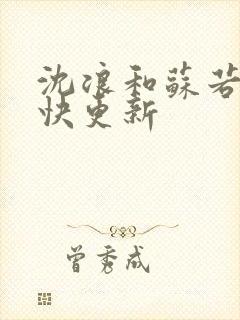 沈浪和蘇若
快更新
曾秀成